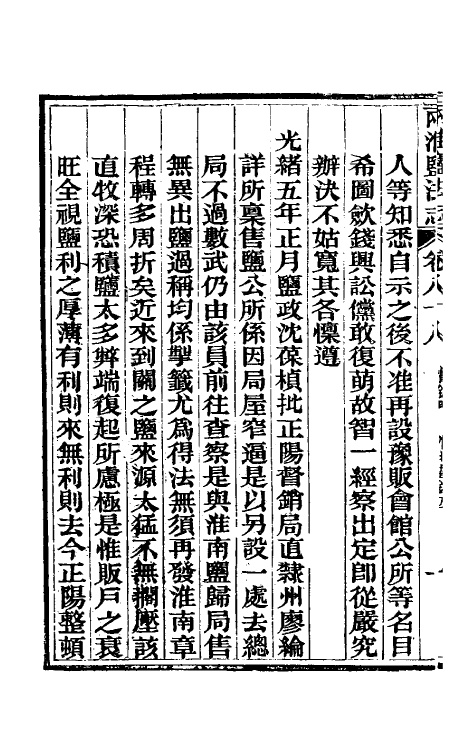 兩淮鹽法志 卷八十八
人等知悉自示之後不准再設豫販會館公所等名目
希圖歛錢興訟儻敢復萌故智一經察出定卽從嚴究
辦決不姑寬其各懍遵
光緒五年正月鹽政沈葆楨批正陽督銷局直隸州廖綸
詳所稟售鹽公所係因局屋窄逼是以另設一處去總
局不過數武仍由該員前往查察是與淮南鹽歸局售
無異出鹽過稱均係掣籤尤爲得法無須再發淮南章
程轉多周折矣近來到關之鹽來源太猛不無擱壓該
直牧深恐積鹽太多弊端復起所慮極是惟販戶之衰
旺全視鹽利之厚薄有利則來無利則去今正陽整頓